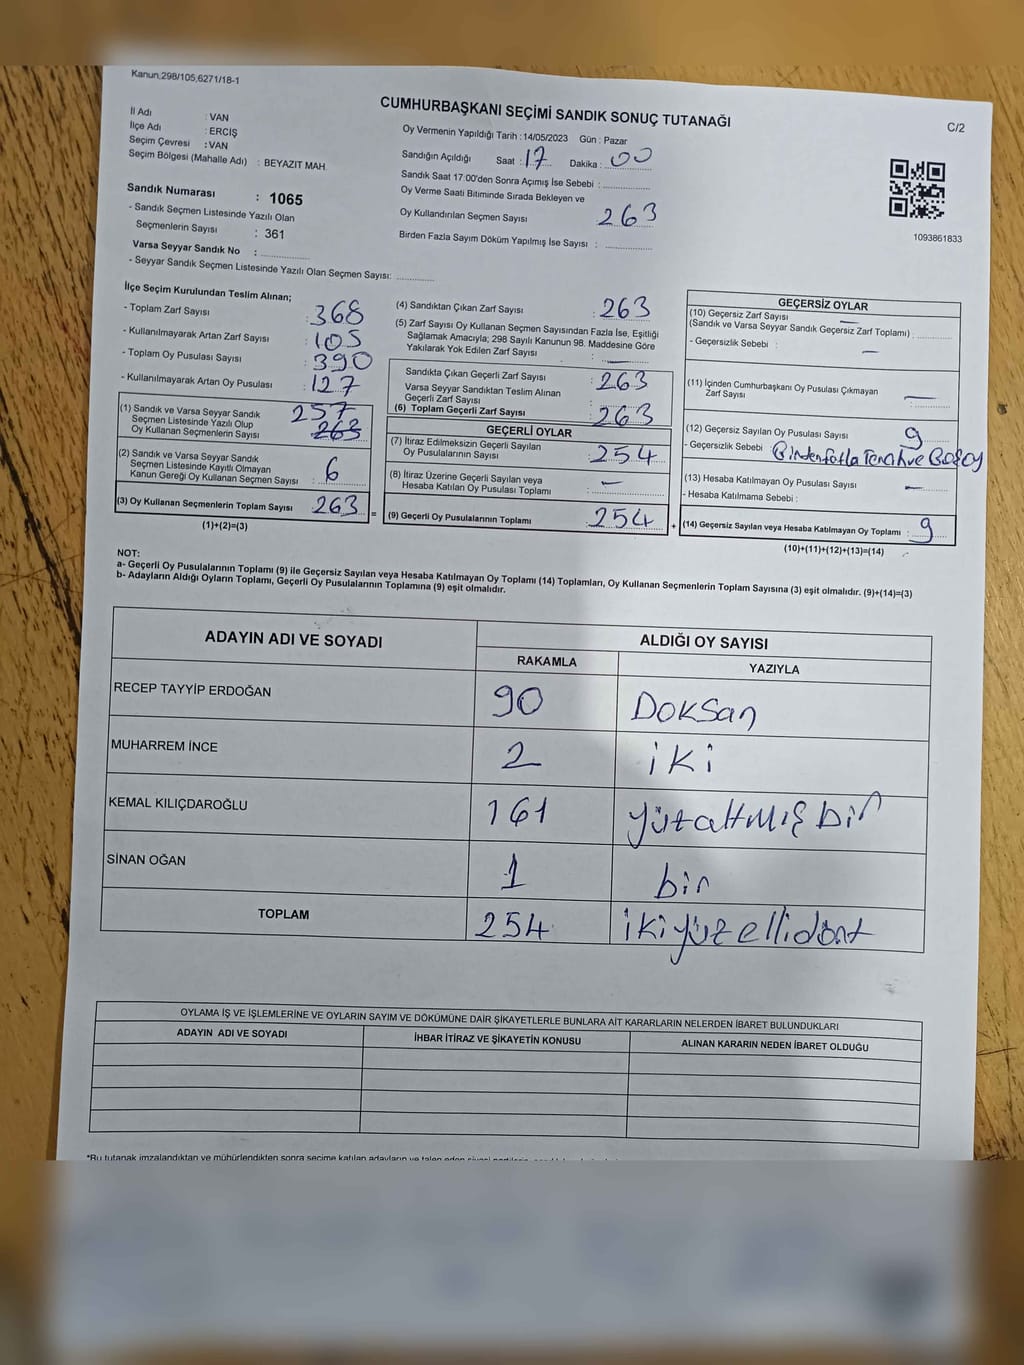 Kanun.298/105,6271/18-1
CUMHURBAŞKANI SEÇİMİ SANDIK SONUÇ TUTANAĞI
C/2
İl Adı : VAN
İlçe Adı : ERCİŞ
Seçim Çevresi : VAN
Seçim Bölgesi (Mahalle Adı) : BEYAZIT MAH.
Sandık Numarası : 1065
- Sandık Seçmen Listesinde Yazılı Olan
Seçmenlerin Sayısı : 361
Varsa Seyyar Sandık No :
- Seyyar Sandık Seçmen Listesinde Yazılı Olan Seçmen Sayısı:
Oy Vermenin Yapıldığı Tarih : 14/05/2023 Gün : Pazar
Sandığın Açıldığı Saat : 17 Dakika : 00
Sandık Saat 17:00'den Sonra Açımış İse Sebebi :
Oy Verme Saati Bitiminde Sırada Bekleyen ve
Oy Kullandırılan Seçmen Sayısı 263
Birden Fazla Sayım Döküm Yapılmış İse Sayısı :
1093861833
İlçe Seçim Kurulundan Teslim Alınan;
- Toplam Zarf Sayısı : 368
- Kullanılmayarak Artan Zarf Sayısı : 105
- Toplam Oy Pusulası Sayısı : 390
- Kullanılmayarak Artan Oy Pusulası : 127
(1) Sandık ve Varsa Seyyar Sandık 257
Seçmen Listesinde Yazılı Olup
Oy Kullanan Seçmenlerin Sayısı 263
(2) Sandık ve Varsa Seyyar Sandık
Seçmen Listesinde Kayıtlı Olmayan
Kanun Gereği Oy Kullanan Seçmen Sayısı : 6
(3) Oy Kullanan Seçmenlerin Toplam Sayısı : 263 =
(1)+(2)=(3)
(4) Sandıktan Çıkan Zarf Sayısı : 263
(5) Zarf Sayısı Oy Kullanan Seçmen Sayısından Fazla İse, Eşitliği
Sağlamak Amacıyla; 298 Sayılı Kanunun 98. Maddesine Göre
Yakılarak Yok Edilen Zarf Sayısı : —
Sandıkta Çıkan Geçerli Zarf Sayısı : 263
Varsa Seyyar Sandıktan Teslim Alınan
Geçerli Zarf Sayısı :
(6) Toplam Geçerli Zarf Sayısı : 263
GEÇERLİ OYLAR
(7) İtiraz Edilmeksizin Geçerli Sayılan
Oy Pusulalarının Sayısı : 254
(8) İtiraz Üzerine Geçerli Sayılan veya
Hesaba Katılan Oy Pusulası Toplamı : —
(9) Geçerli Oy Pusulalarının Toplamı : 254 +
GEÇERSİZ OYLAR
(10) Geçersiz Zarf Sayısı —
(Sandık ve Varsa Seyyar Sandık Geçersiz Zarf Toplamı) :
- Geçersizlik Sebebi : —
(11) İçinden Cumhurbaşkanı Oy Pusulası Çıkmayan
Zarf Sayısı : —
(12) Geçersiz Sayılan Oy Pusulası Sayısı : 9
- Geçersizlik Sebebi :
(13) Hesaba Katılmayan Oy Pusulası Sayısı : —
- Hesaba Katılmama Sebebi :
(14) Geçersiz Sayılan veya Hesaba Katılmayan Oy Toplamı : 9
(10)+(11)+(12)+(13)=(14)
NOT:
a- Geçerli Oy Pusulalarının Toplamı (9) ile Geçersiz Sayılan veya Hesaba Katılmayan Oy Toplamı (14) Toplamları, Oy Kullanan Seçmenlerin Toplam Sayısına (3) eşit olmalıdır. (9)+(14)=(3)
b- Adayların Aldığı Oyların Toplamı, Geçerli Oy Pusulalarının Toplamına (9) eşit olmalıdır.
ADAYIN ADI VE SOYADI ALDIĞI OY SAYISI
RAKAMLA YAZIYLA
RECEP TAYYİP ERDOĞAN 90 Doksan
MUHARREM İNCE 2 iki
KEMAL KILIÇDAROĞLU 161 yüzaltmış bir
SİNAN OĞAN 1 bir
TOPLAM 254 ikiyüzellidört
OYLAMA İŞ VE İŞLEMLERİNE VE OYLARIN SAYIM VE DÖKÜMÜNE DAİR ŞİKAYETLERLE BUNLARA AİT KARARLARIN NELERDEN İBARET BULUNDUKLARI
ADAYIN ADI VE SOYADI İHBAR İTİRAZ VE ŞİKAYETİN KONUSU ALINAN KARARIN NEDEN İBARET OLDUĞU
*Bu tutanak imzalandıktan ve mühürlendikten sonra seçime katılan adayların ve talep eden